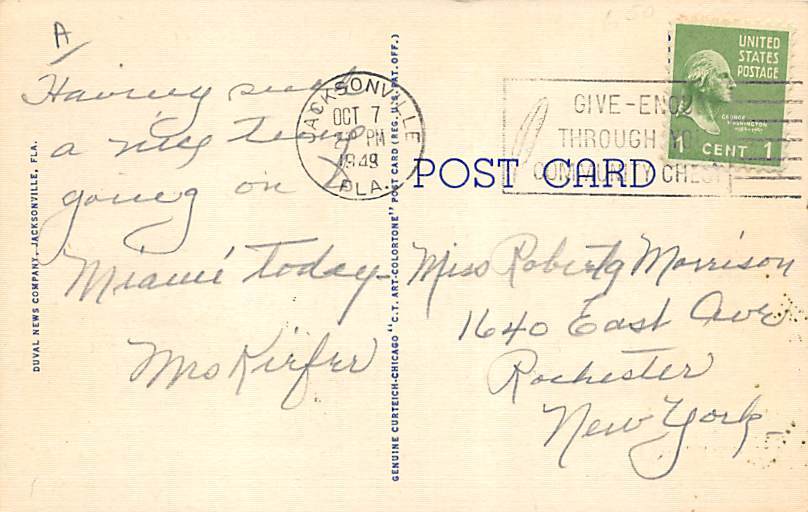 A
Having such
a nice time
going on to
Miami today
Mrs Kiefer
DUVAL NEWS COMPANY, JACKSONVILLE, FLA.
GENUINE CURTEICH-CHICAGO "C.T. ART-COLORTONE" POST CARD (REG. U.S. PAT. OFF.)
JACKSONVILLE
OCT 7
2 PM
1949
FLA.
GIVE-ENOU
THROUGH YO
COMMUNITY CHEST
UNITED
STATES
POSTAGE
GEORGE
WASHINGTON
1 CENT 1
POST CARD
Miss Roberta Morrison
1640 East Ave
Rochester
New York